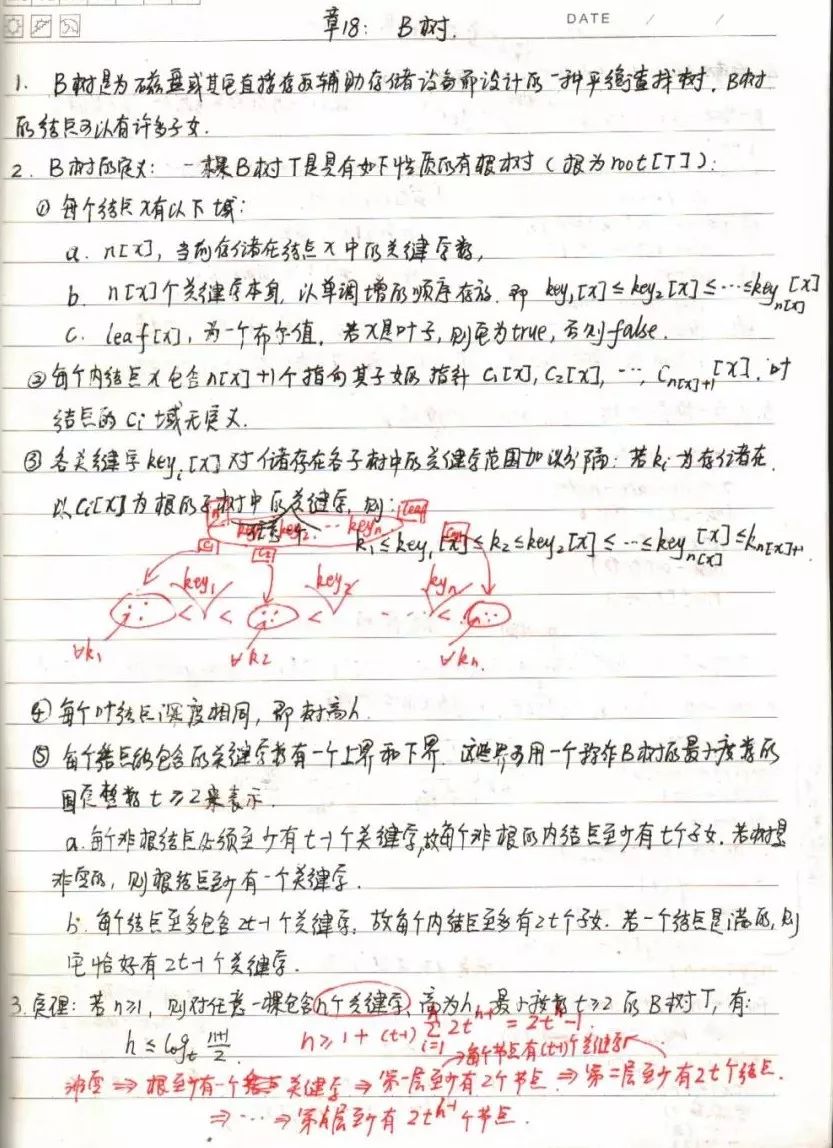 DATE / /
章18: B树.
1. B树是为磁盘或其它直接存取辅助存储设备而设计的一种平衡查找树. B树
的结点可以有许多子女.
2. B树的定义: 一棵B树T是具有如下性质的有根树 (根为root[T]):
① 每个结点x有以下域:
a. n[x], 当前存储在结点x中的关键字数,
b. n[x]个关键字本身, 以单调增的顺序存放. 即 key₁[x]≤key₂[x]≤…≤key_n[x][x]
c. leaf[x], 为一个布尔值. 若x是叶子, 则它为true, 否则false.
② 每个内结点x包含n[x]+1个指向其子女的指针 C₁[x], C₂[x], …, C_n[x]+1[x]. 叶
结点的Ci域无定义.
③ 各关键字key_i[x]对储存在各子树中的关键字范围加以分隔: 若ki为存储者在
以Ci[x]为根的子树中的关键字, 则:
n key₁ key₂ … key_n leaf
k₁≤key₁[x]≤k₂≤key₂[x]≤…≤key_n[x][x]≤k_n[x]+1.
C₁ C₂
key₁ key₂ key_n
< < < … <
∀k₁ ∀k₂ ∀kn.
④ 每个叶结点深度相同, 即树高h.
⑤ 每个结点能包含的关键字数有一个上界和下界. 这些界可用一个称作B树的最小度数的
固定整数 t≥2来表示.
a. 每个非根结点必须至少有t-1个关键字, 故每个非根的内结点至少有t个子女. 若树是
非空的, 则根结点至少有一个关键字.
b. 每个结点至多包含2t-1个关键字. 故每个内结点至多有2t个子女. 若一个结点是满的, 则
它恰好有2t-1个关键字.
3. 定理: 若n≥1, 则对任意一棵包含n个关键字, 高为h, 最小度数t≥2的B树T, 有:
h ≤ log_t (n+1)/2. n ≥ 1 + (t-1) Σ_{i=1}^{h} 2t^{i-1} = 2t^h - 1.
→每个节点有(t-1)个关键字
非空 ⇒ 根至少有一个关键字 ⇒ 第一层至少有2个节点 ⇒ 第二层至少有2t个结点.
⇒ … ⇒ 第h层至少有 2t^{h-1} 个节点.